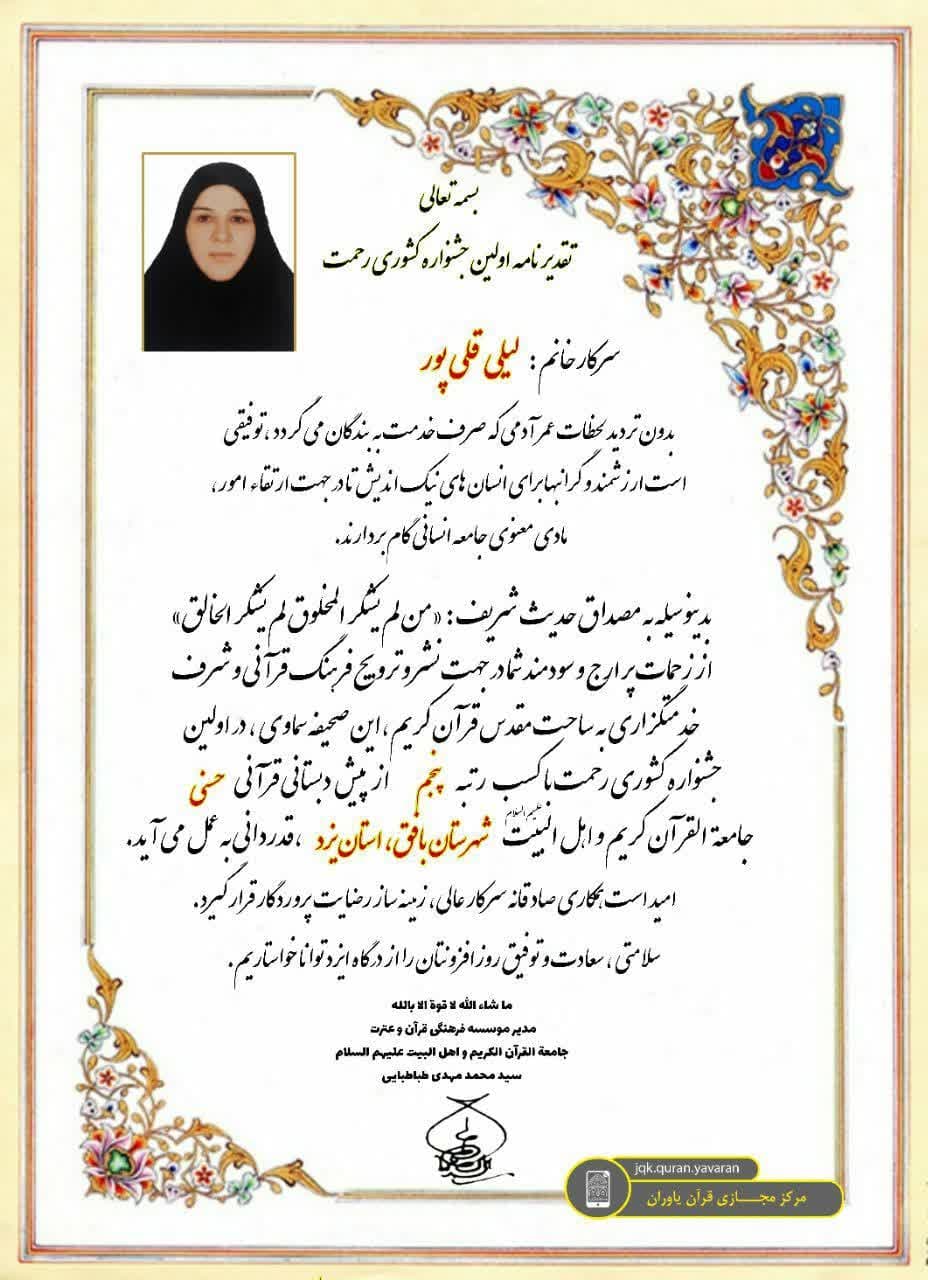 بسمه تعالی
تقدیر نامه اولین جشنواره کشوری رحمت
سرکار خانم : لیلی قلی پور
بدون تردید لحظات عمر آدمی که صرف خدمت به بندگان می گردد ، توفیقی
است ارزشمند و گرانبها برای انسان های نیک اندیش تا در جهت ارتقاء امور ،
مادی معنوی جامعه انسانی گام بردارند.
بدینوسیله به مصداق حدیث شریف : «من لم یشکر المخلوق لم یشکر الخالق»
از زحمات پر ارج و سودمند شما در جهت نشر و ترویج فرهنگ قرآنی و شرف
خدمتگزاری به ساحت مقدس قرآن کریم ، این صحیفه سماوی ، در اولین
جشنواره کشوری رحمت با کسب رتبه پنجم از پیش دبستانی قرآنی حسنی
جامعة القرآن کریم و اهل البیت علیهم السلام شهرستان بافق ، استان یزد ، قدردانی به عمل می آید.
امید است همکاری صادقانه سرکار عالی ، زمینه ساز رضایت پروردگار قرار گیرد.
سلامتی ، سعادت و توفیق روز افزونتان را از درگاه ایزد توانا خواستاریم.
ما شاء الله لا قوة الا بالله
مدیر موسسه فرهنگی قرآن و عترت
جامعة القرآن الکریم و اهل البیت علیهم السلام
سید محمد مهدی طباطبایی
jqk.quran.yavaran
مرکز مجــازی قرآن یاوران